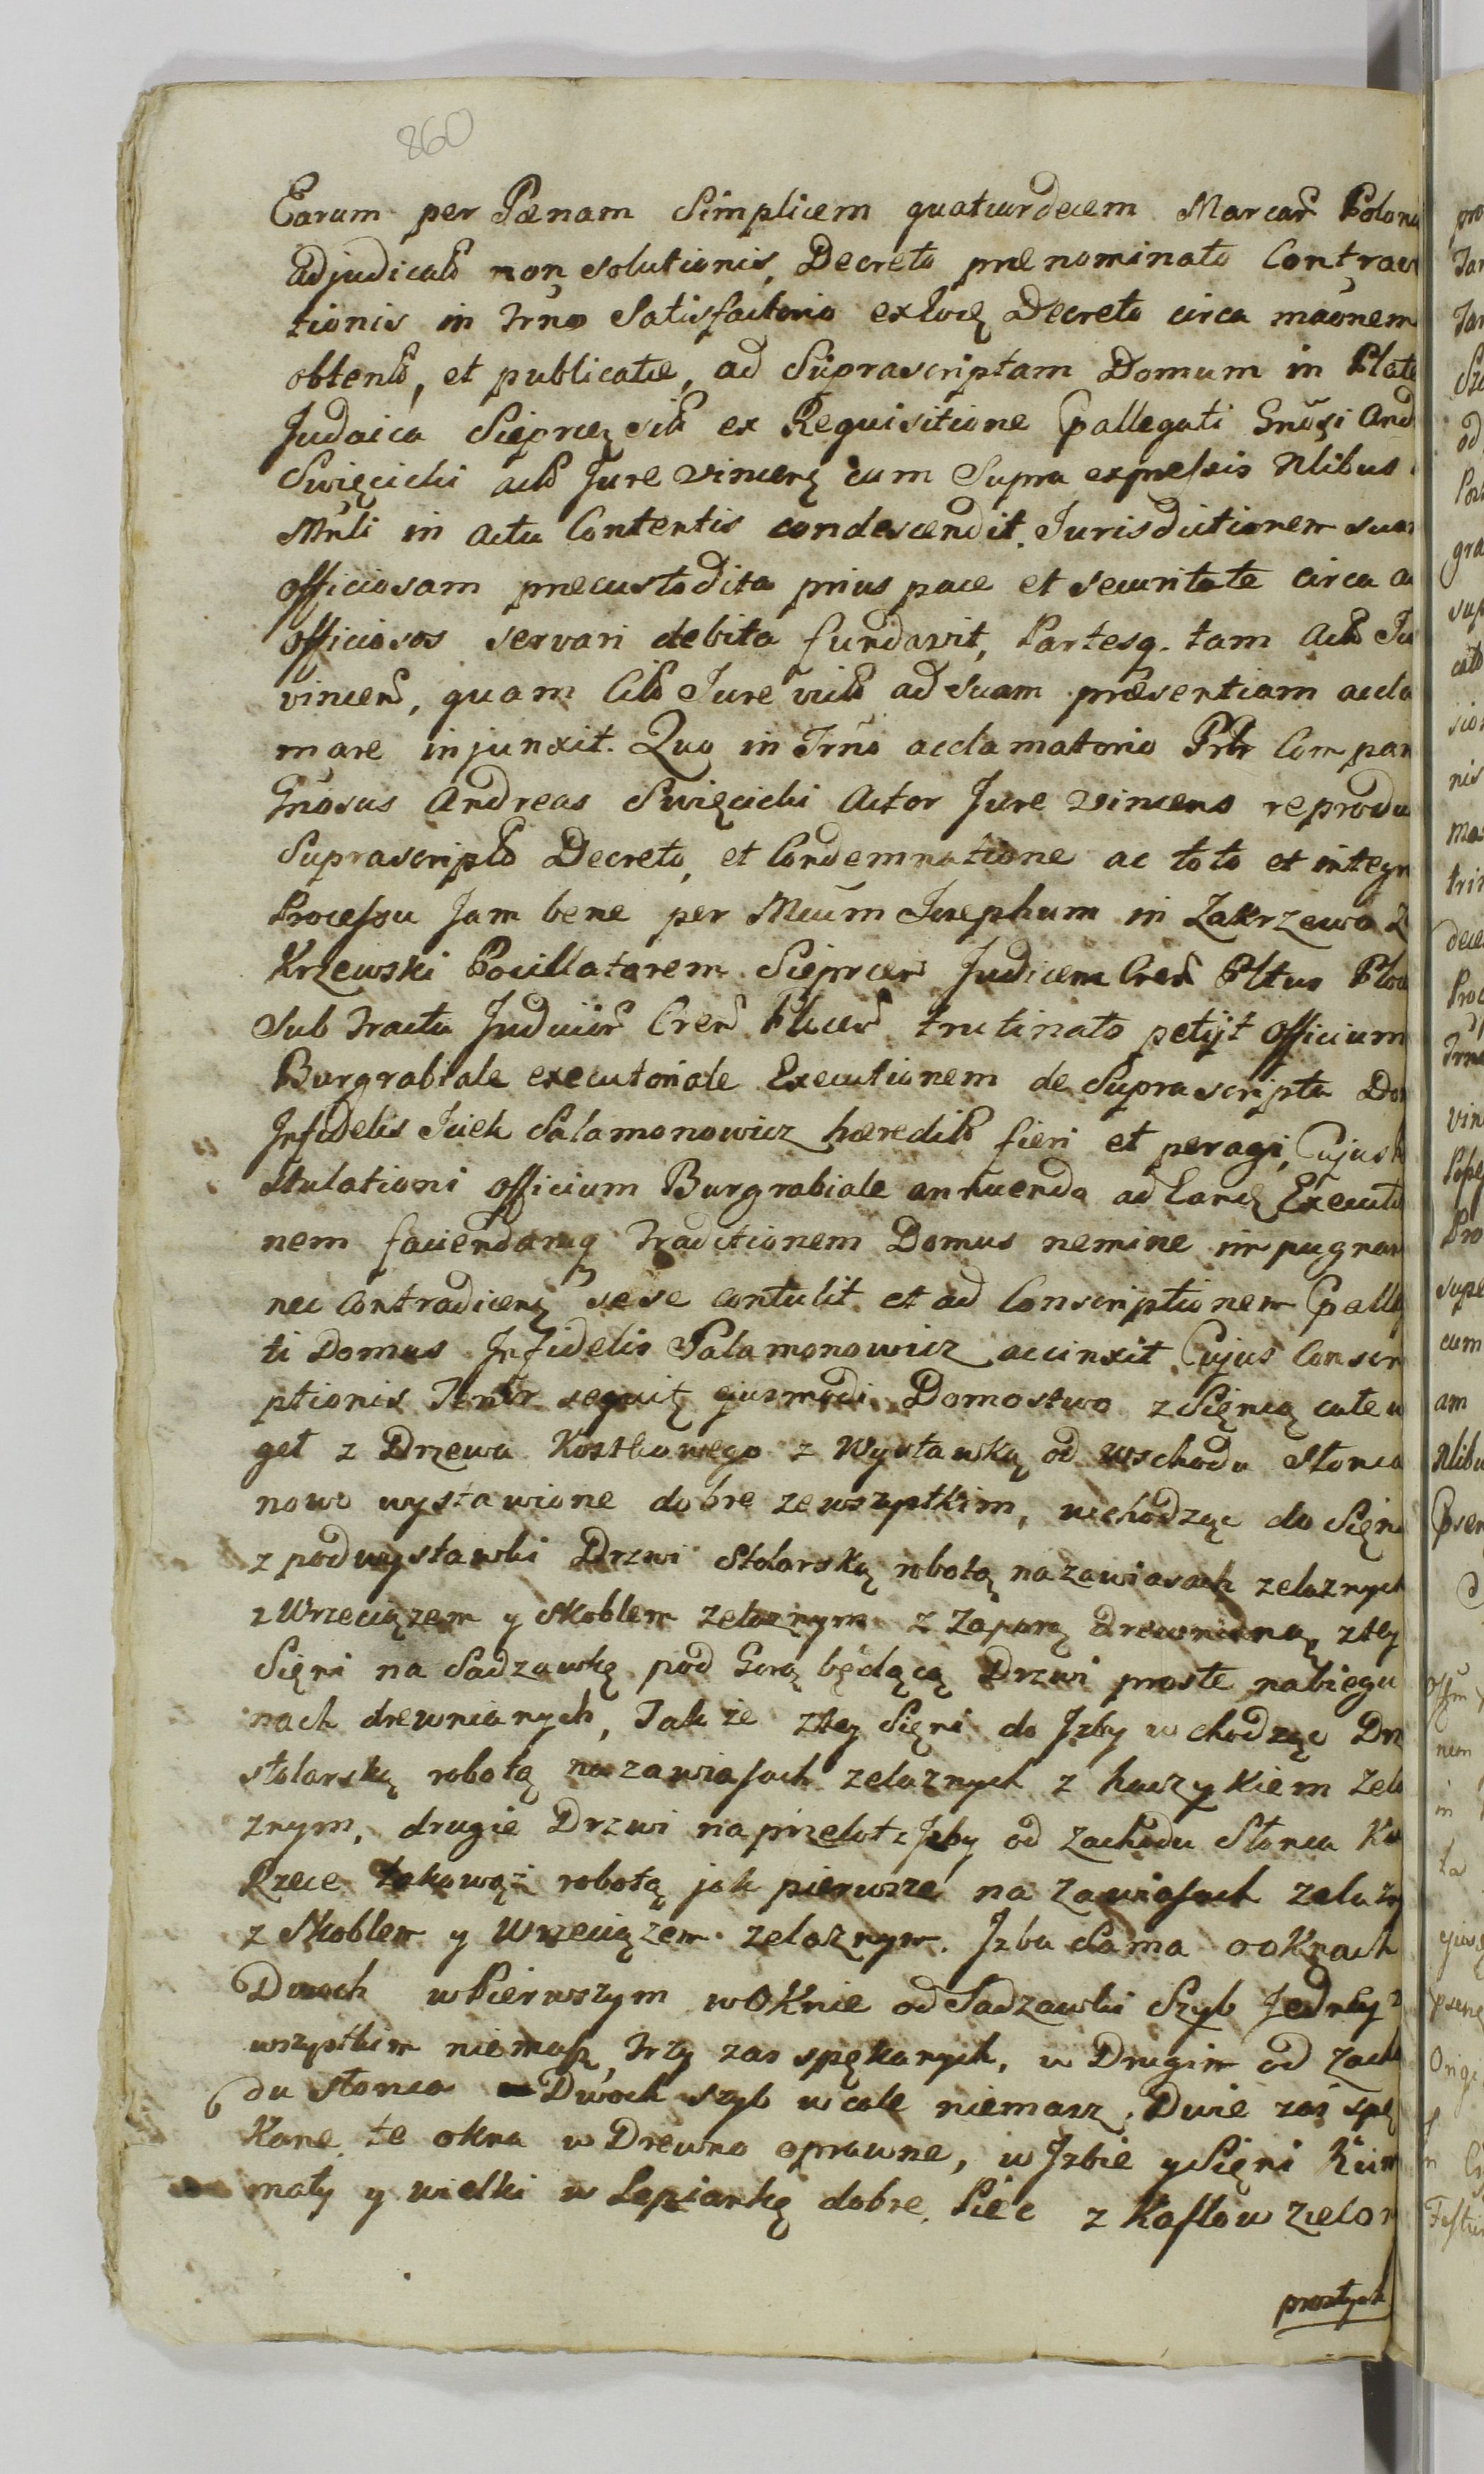 860
Earum per Pænam Simplicem quatuordecem Marcar Polon
adjudicato non solutionis, Decreto prænominato Contrav
tionis in Trno Satisfactorio Decreto circa maōnem
obtento, et publicatæ, ad Suprascriptam Domum in Plate
Judaica ex Requisitione Gnosi And
Swięcicki Jure vincenȩ cum Supra expressis Nlibus
Mnli in actu Contentis condescendit. Jurisdictionem suam
officiosam præcustodita prius pace et securitate circa a
officiosos servari debita fundavit, Partesq. tam Ju
vincen, quam Jure ad suam præsentiam accla
mare injunxit. Quo in Trno acclamatorio Compar
Gnosus Andreas Swięcicki Actor Jure vincens reprodu
Suprascripto Decreto, et Condemnatione ac toto et integr
Processu Jam bene per Mcum Josephum in Zakrzewo Z
Krzewski Pocillatorem Judicem
Sub Tractu trutinato petijt Officium
Burgrabiale executoriale Executionem de Suprascripta Do
Infidelis Icek Salamonowicz fieri et peragi, Cujus
stulationi officium Burgrabiale annuendo ad Execut
nem faciendamq Traditionem Domus nemine impugnan
nec Contradicenȩ sese contulit et ad Conscriptionem
ti Domus Infidelis Salamonowicz accinxit. Cujus Conscri
ptionis seqvitȩ ejusmodi. Domostwo z Sięnią całe w
geł z Drzewa Kostkowego z Wystawką od wschodu Słonca
nowo wystawione dobre zewszystkim, wchodząc do Sięni
z podwystawki Drzwi Stolarską robotą nazawiasach zelaznych
z Wrzeciązem y Skoblem zelaznym z Zaporą drewnianą, ztey
Sięni na Sadzawkę pod Gorą będącą Drzwi proste nabiegu
nach drewnianych, Takze ztey Sięni do Jzby wchodząc Drz
stolarską robotą nazawiasach zelaznych z haczykiem zela
znym, drugie Drzwi naprzelot z Jzby od Zachodu Słonca Ku
Rzece takowąż robotą jak pierwsze na zawiasach zelazn
z Skoblem y Wrzeciązem zelaznym. Jzba sama ooKnach
Dwoch wPierwszym wOKnie od Sadzawki Szyb Jedney z
wszystkim niemasz, Trzy zas spękanych, w Drugim od Zacho
du słonca Dwoch szyb wcale niemasz. Dwie zaś spę
Kane, te okna w Drewno oprawne, w Jzbie y Sięni Kum
mały y wielki w Lepiankę dobre. Piec z Kaflow zielon
prostych